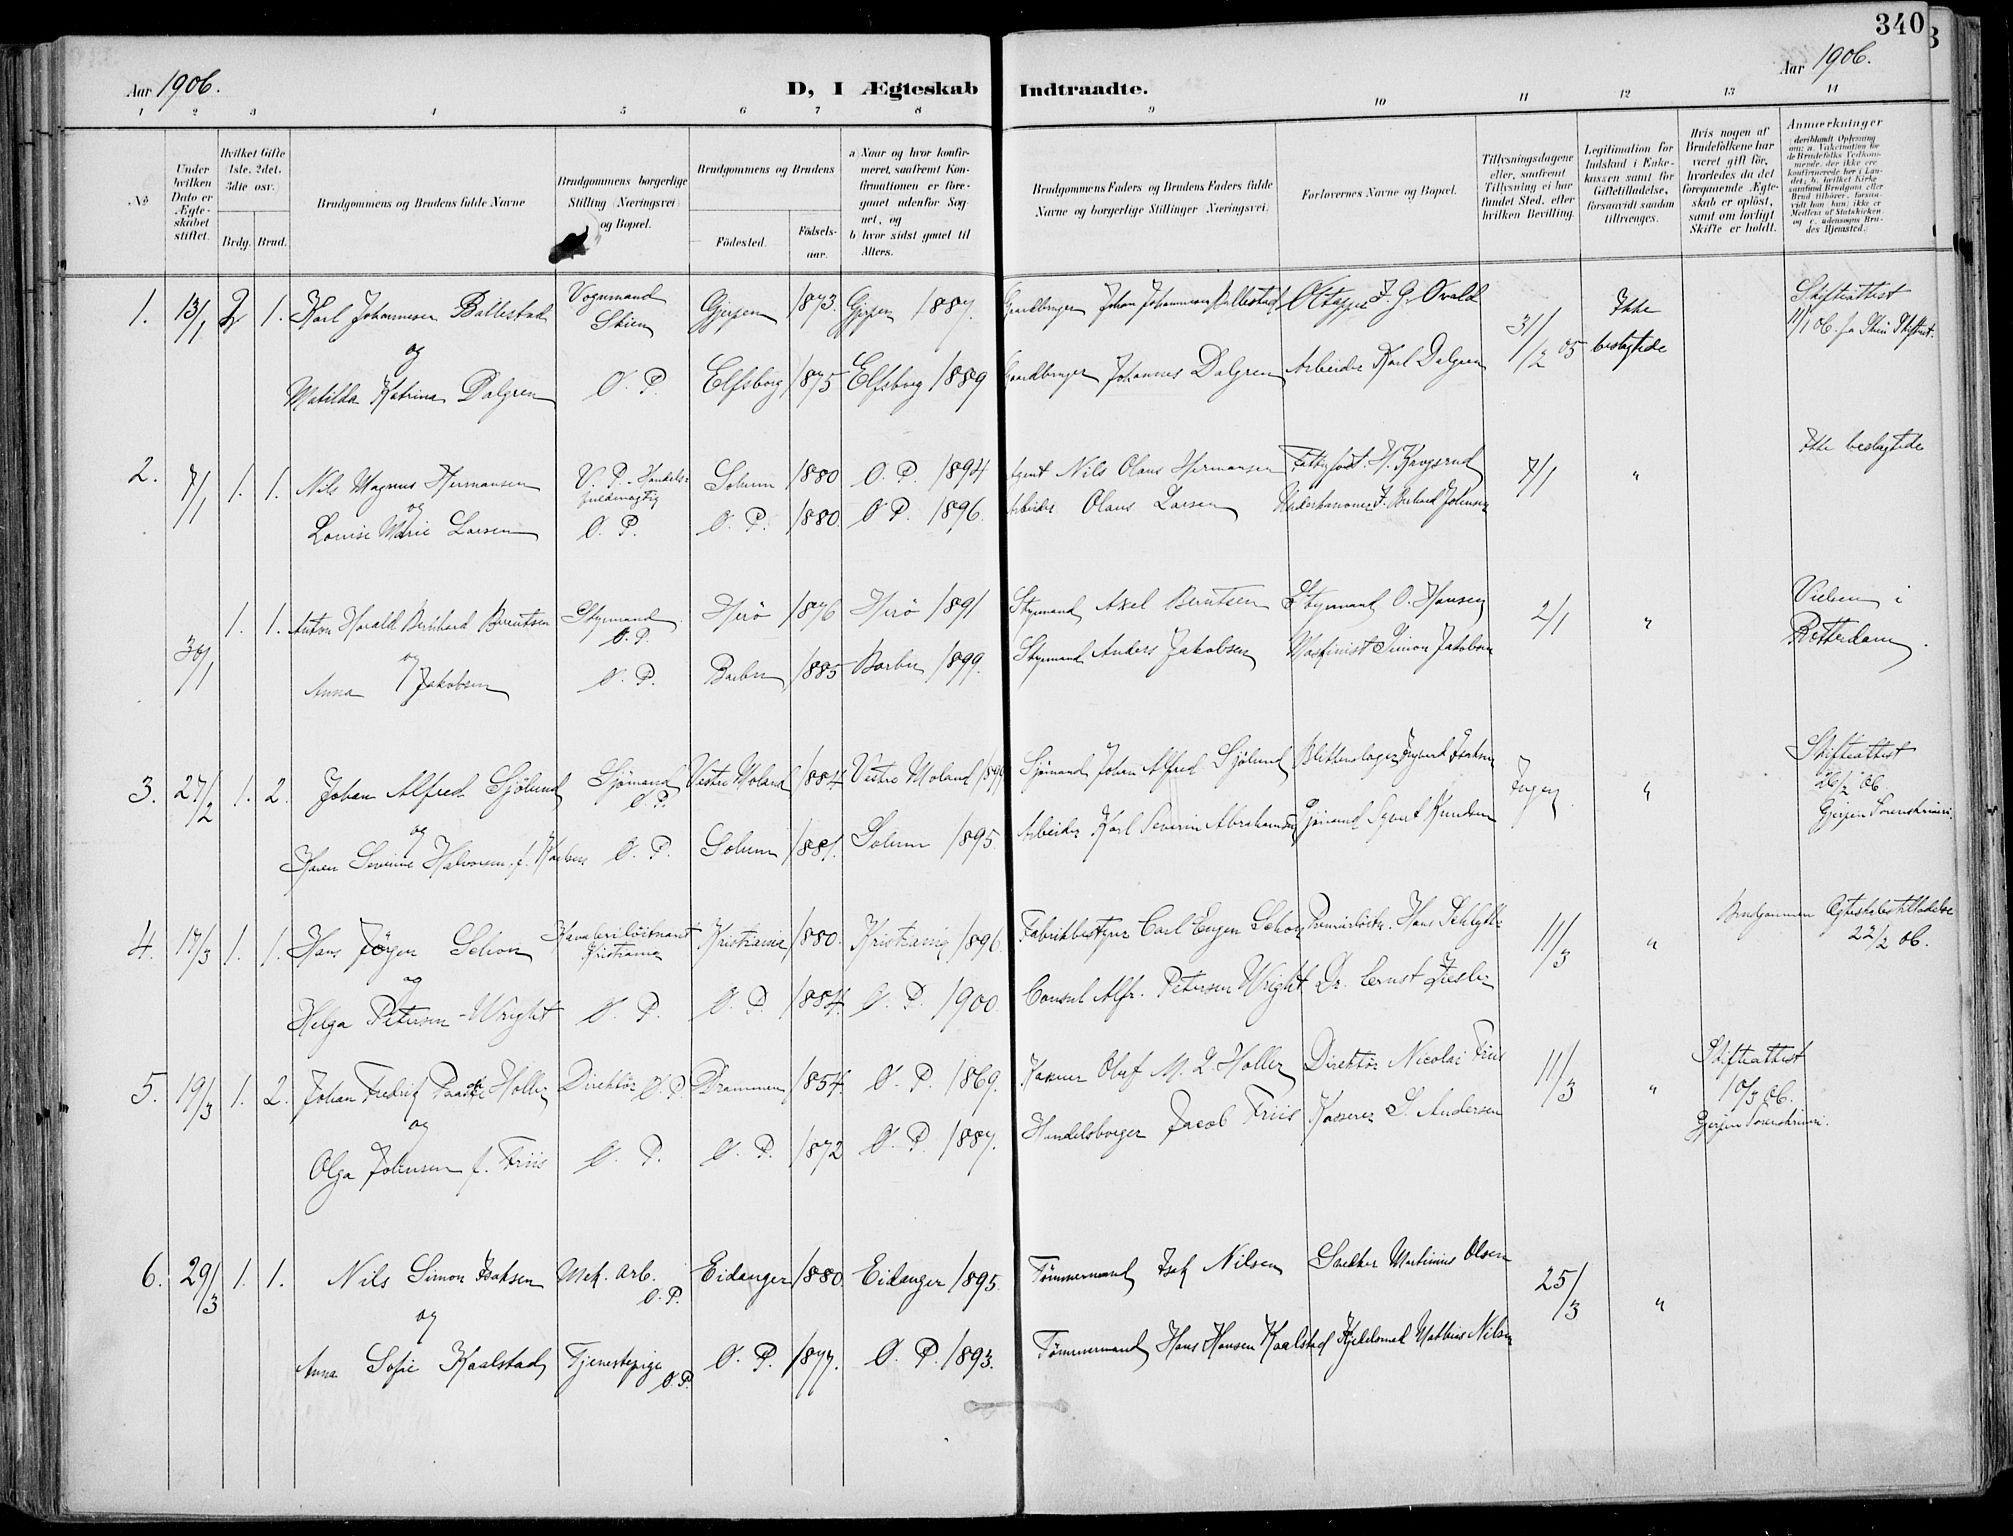 340
Aar 1906.
D, I Ægteskab Indtraadte.
Aar 1906.
1 2 3 4 5 6 7 8 9 10 11 12 13 14
№
Under hvilken Dato er Ægteskabet stiftet.
Hvilket Gifte 1ste, 2det, 3die osv.
Brdg. Brud.
Brudgommens og Brudens fulde Navne
Brudgommens borgerlige Stilling (Næringsvei) og Bopæl.
Brudgommens og Brudens
Födested.
Födsels-aar.
a) Naar og hvor konfirmeret, saafremt Konfirmationen er foregaaet udenfor Sognet, og
b) hvor sidst gaaet til Alters.
Brudgommens Faders og Brudens Faders fulde Navne og borgerlige Stillinger (Næringsvei)
Forlovernes Navne og Bopæl.
Tillysningsdagene eller, saafremt Tillysning ei har fundet Sted, efter hvilken Bevilling.
Legitimation for Indskud i Enkekassen samt for Giftetilladelse, forsaavidt saadan tiltrænges.
Hvis nogen af Brudefolkene har været gift för, hvorledes da det foregaaende Ægteskab er oplöst, samt om lovligt Skifte er holdt.
Anmærkninger
1. 13/1 2 1. Karl Johannesen Ballestad Vognmand Skien Gjerpen 1873. Gjerpen 1887. Gaardbruger Johan Johannesen Ballestad F. G. Owald 31/12 05 Ikke beslægtede Skifteattest 11/1 06. fra Skien Skifteret.
og
Matilda Katrina Dalgren O. P. Elfsborg 1875 Elfsborg 1889 Gaardbruger Johannes Dalgren Arbeider Karl Dalgren
2. 7/1 1. 1. Nils Magnus Hermansen V. P. Handelsfuldmægtig Solum 1880 O. P. 1894 Agent Nils Olaus Hermansen H. Krogsrud 7/1 " Ikke beslægtede
og
Louise Marie Larsen O. P. O. P. 1880. O P. 1896. Arbeider Olaus Larsen
30/1 1. 1. Anton Harald Bernhard Berentsen Styrmand O. P. Herö 1876 Herö 1891 Styrmand Axel Berntsen Styrmand O. Hansen 2/1 " Vielsen i Rotterdam.
og
Anna Jakobsen O. P. Barbu 1885 Barbu 1899. Styrmand Anders Jakobsen Maskinist Simon Jakobsen
3. 27/2 1. 2. Johan Alfred Sjölund Sjömand O. P. Vestre Moland 1884 Vestre Moland Sjömand Johan Alfred Sjölund Ingen " Skifteattest 26/2 06 Gjerpen Sorenskriveri.
og
Karen Severine Halvorsen f. O. P. Solum 1881. Solum 1895. Arbeider Karl Severin Abrahamsen Sjömand Knudsen
4. 17/3 1. 1. Hans Jörgen Schou Kavaleriløitnant Kristiania Kristiania 1880. Kristiania 1896. Fabrikbestyrer Carl Eugen Schou Premierløitn. Hans Schlytter 11/3 " Brudgommen Ægteskabstilladelse 22/2 06.
og
Helga Petersen-Wright O. P. O. P. 1884. O. P. 1900. Consul Alfr. Petersen Wright Dr. Ernst
5. 19/3 1. 2. Johan Fredrik Paaske Holler Direktör O. P. Drammen 1854. O. P. 1869. Oluf M. L Holler Direktör Nicolai Friis 11/3 " Skifteattest 10/3 06. Gjerpen Sorenskriveri.
og
Olga Johnsen f. Friis O. P. O. P. 1872 O. P. 1887. Handelsborger Jacob Friis Kasserer S. Andersen
6. 29/3 1. 1. Nils Simon Isaksen Mek. arb. O. P. Eidanger 1880. Eidanger 1895. Tömmermand Isak Nilsen Snedker Martinius Olsen 25/3 "
og
Anna Sofie Kaalstad Tjenestepige O. P. O. P. 1877. O. P. 1893. Tömmermand Hans Hansen Kaalstad Kjedelsmed Mathias Nilsen